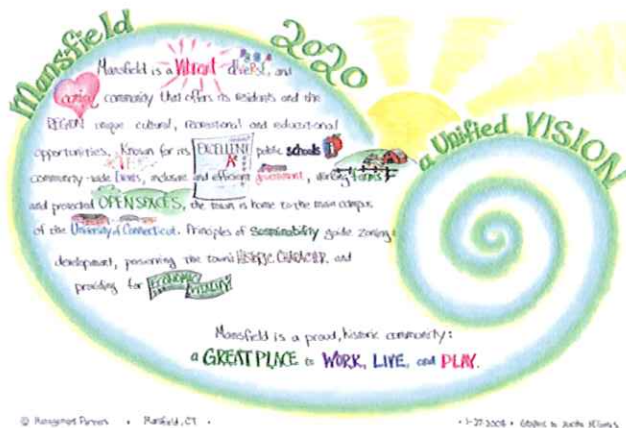 Mansfield 2020 a Unified VISION
Mansfield is a Vibrant diverse, and
caring community that offers its residents and the
REGION unique cultural, recreational and educational
opportunities. Known for its EXCELLENT A+ public schools
community-wide events, inclusive and efficient government, working farms
and protected OPEN SPACES, the town is home to the main campus
of the University of Connecticut. Principles of Sustainability guide zoning &
development, preserving the town's HISTORIC CHARACTER, and
providing for ECONOMIC VITALITY.
Mansfield is a proud, historic community:
a GREAT PLACE to WORK, LIVE, and PLAY.
© Management Partners • Mansfield, CT •